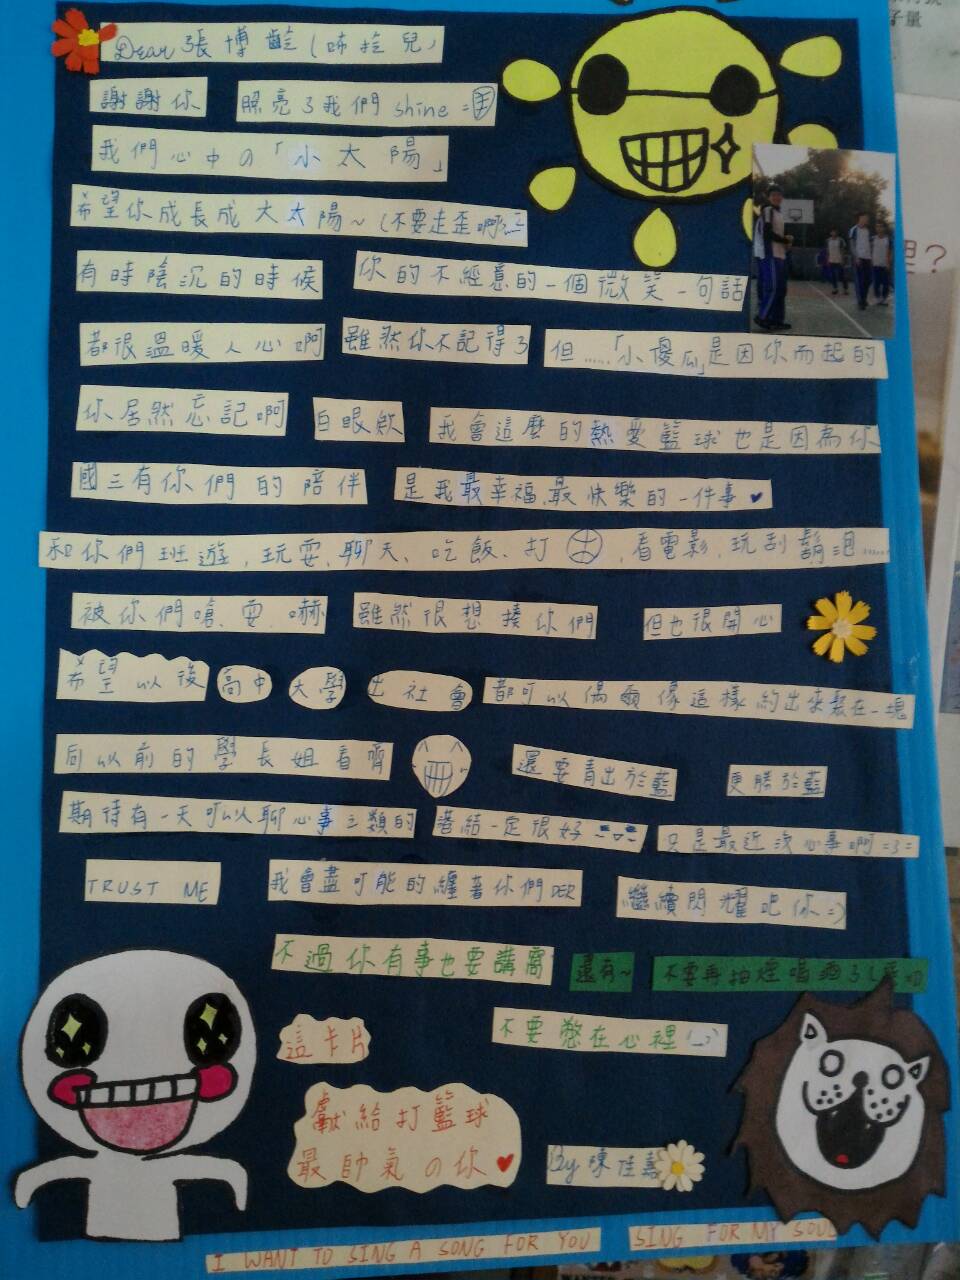 Dear 張博齡(咘拉兒)
謝謝你 照亮了我們 shine =
我們心中の「小太陽」
希望你成長成大太陽~(不要走歪啊
有時陰沉的時候 你的不經意的一個微笑一句話
都很溫暖人心啊 雖然你不記得了 但……「小傻瓜」是因你而起的
你居然忘記啊 白眼欸 我會這麼的熱愛籃球也是因為你
國三有你們的陪伴 是我最幸福、最快樂的一件事
和你們班遊、玩耍、聊天、吃飯、打 、看電影、玩刮鬍泡……
被你們嗆、耍、嚇 雖然很想揍你們 但也很開心
希望以後 高中 大學 出社會 都可以偶爾像這樣約出來聚在一塊
向以前的學長姐看齊 還要青出於藍 更勝於藍
期待有一天可以聊心事之類的 總結一定很好 只是最近沒心事啊 =3=
TRUST ME 我會盡可能的纏著你們DER 繼續閃耀吧你 =)
不過你有事也要講窩 還有~ 不要再抽菸喝酒了
這卡片 不要憋在心裡
獻給打籃球
最帥氣の你
By 陳佳嘉
I WANT TO SING A SONG FOR YOU SING FOR MY SOUL
子量